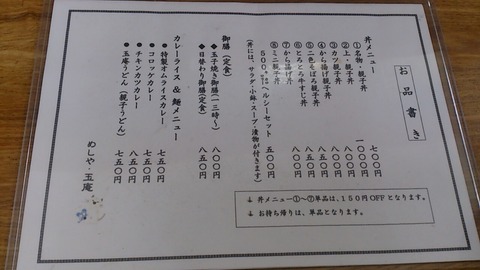 お品書き
丼メニュー
①名物・親子丼 七〇〇円
②上・親子丼 一〇〇〇円
③カツ親子丼 八五〇円
④から揚げ親子丼 八五〇円
⑤二色そぼろ親子丼
⑥とろとろ牛すじ丼
⑦から揚げ丼
⑧ミニ親子丼 五〇〇円
500 ヘルシーセット 五〇〇円
(丼には、サラダ・小鉢・スープ・漬物が付きます)
御膳(定食)
◆玉子焼き御膳(一三時〜) 八〇〇円
◆日替わり御膳(定食) 八五〇円
カレーライス & 麺メニュー
◆特製オムライスカレー 七五〇円
◆コロッケカレー 七五〇円
◆チキンカツカレー 八五〇円
◆玉庵うどん(親子うどん) 七五〇円
めしや・玉庵
↓ 丼メニュー①〜⑦単品は、150円OFFとなります。
↓ お持ち帰りは、単品となります。